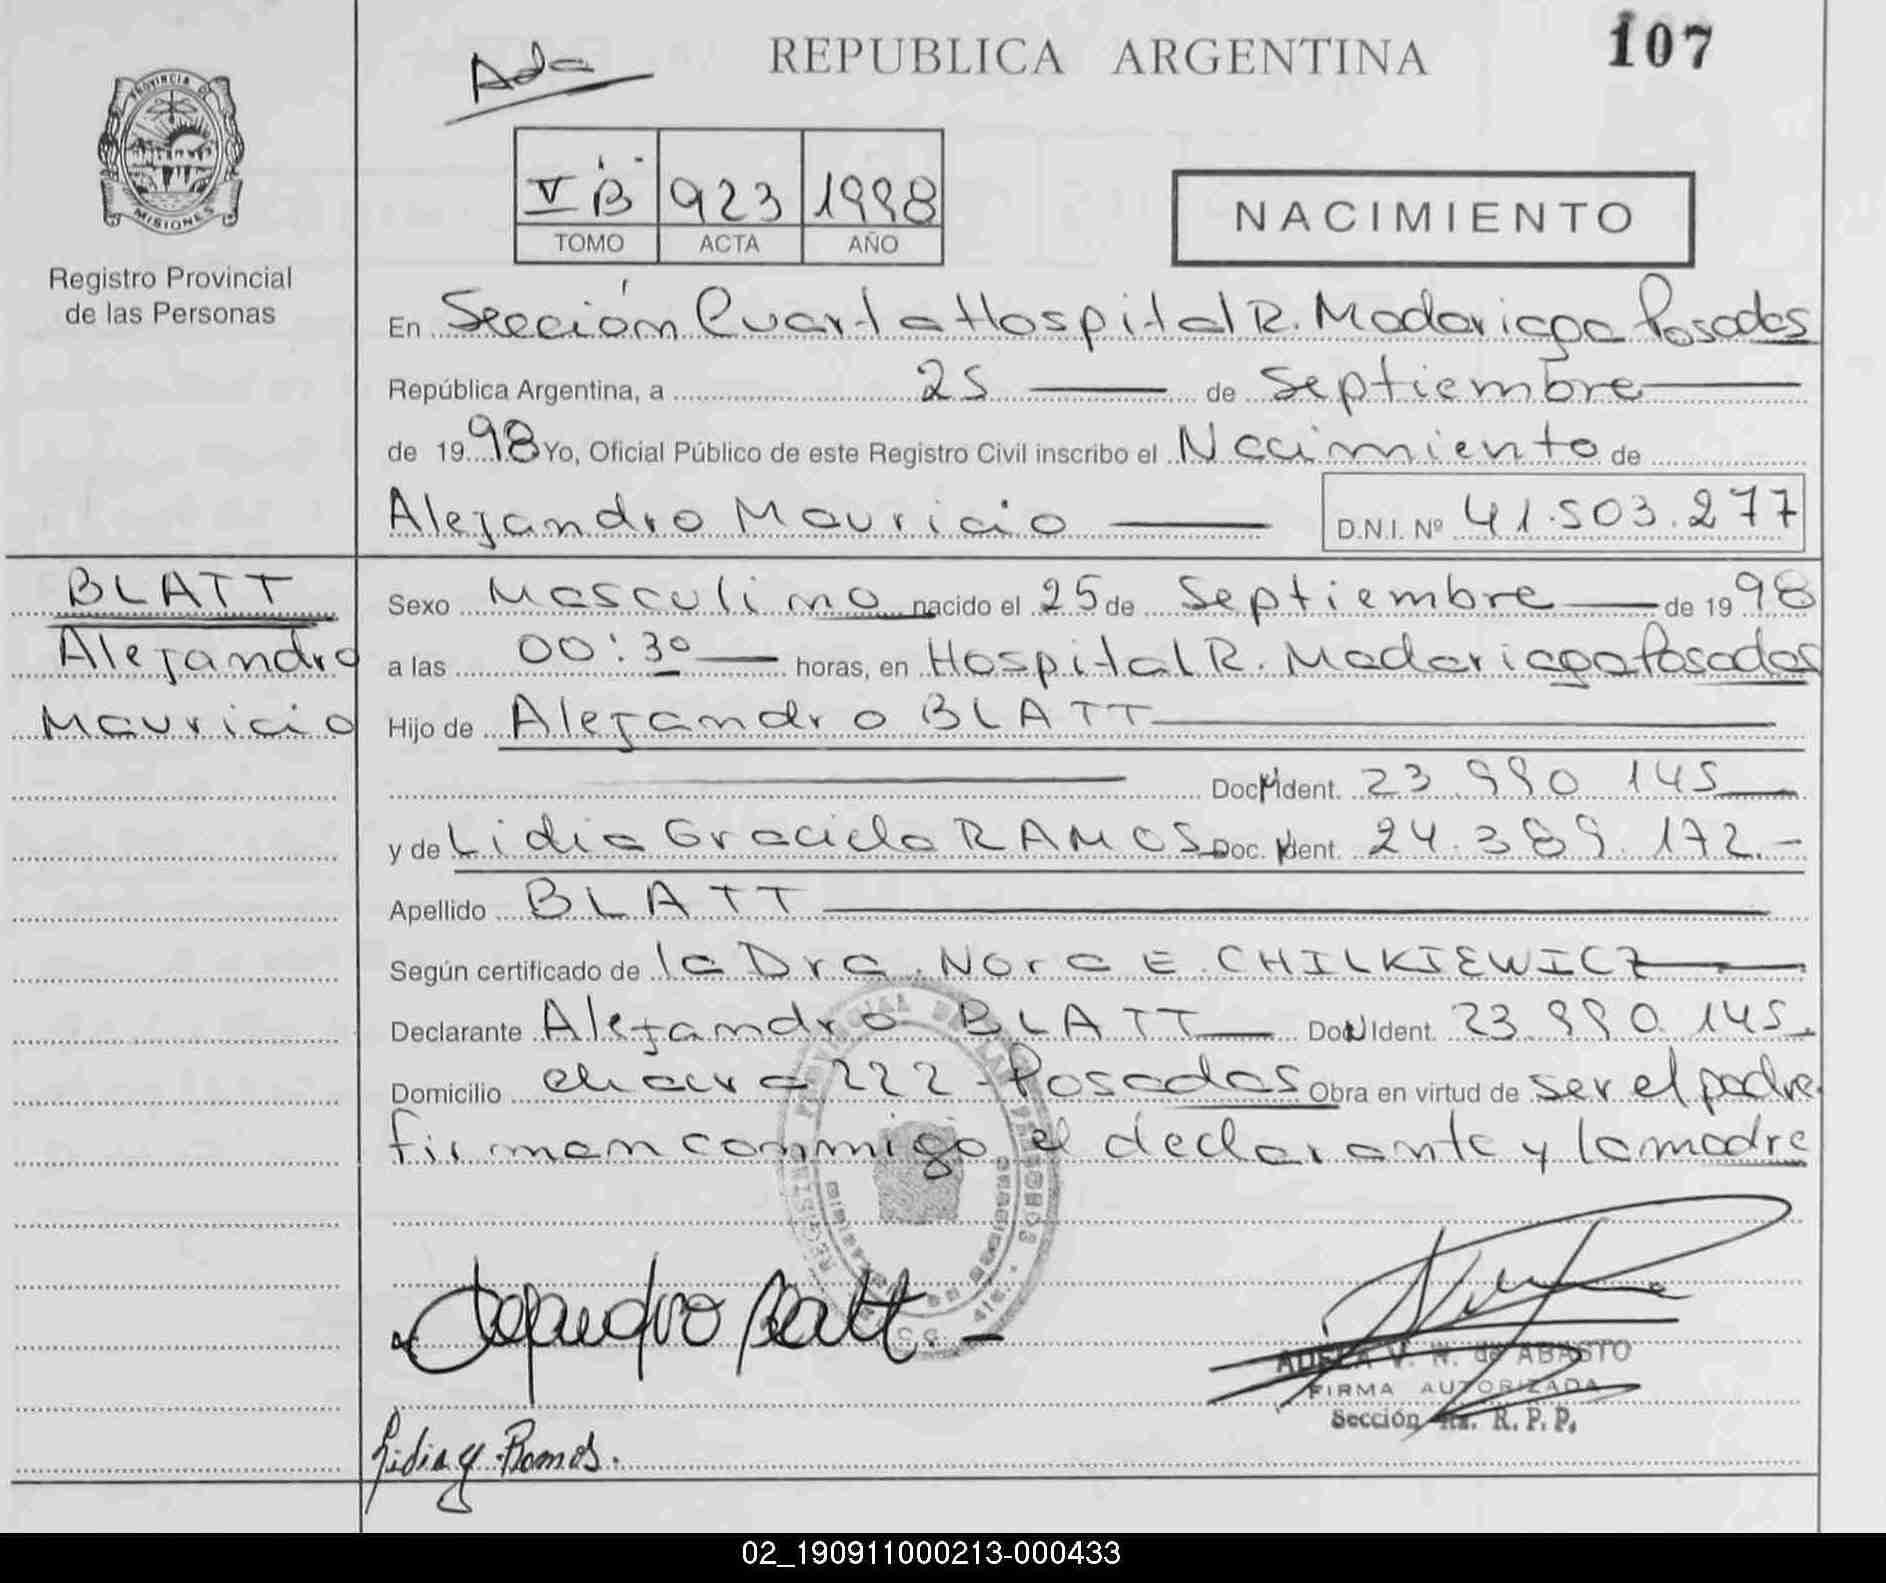 Ada
REPUBLICA ARGENTINA
107
PROVINCIA DE
MISIONES
Registro Provincial
de las Personas
V B 923 1998
TOMO ACTA AÑO
NACIMIENTO
En Sección Cuarta Hospital R. Madariaga Posadas
República Argentina, a 25 de Septiembre
de 1998 Yo, Oficial Público de este Registro Civil inscribo el Nacimiento de
Alejandro Mauricio D.N.I. Nº 41.503.277
BLATT
Alejandro
Mauricio
Sexo Masculino nacido el 25 de Septiembre de 1998
a las 00:30 horas, en Hospital R. Madariaga Posadas
Hijo de Alejandro BLATT
Doc. Ident. 23.990.145
y de Lidia Graciela RAMOS Doc. Ident. 24.389.172.-
Apellido BLATT
Según certificado de la Dra. Nora E. CHILKIEWICZ
Declarante Alejandro BLATT Doc. Ident. 23.990.145
Domicilio chacra 222 - Posadas Obra en virtud de ser el padre
firman conmigo el declarante y la madre
Alejandro Blatt.
ADELA V. N. de ABASTO
FIRMA AUTORIZADA
Sección 4a. R. P. P.
Lidia G. Ramos.
02_190911000213-000433